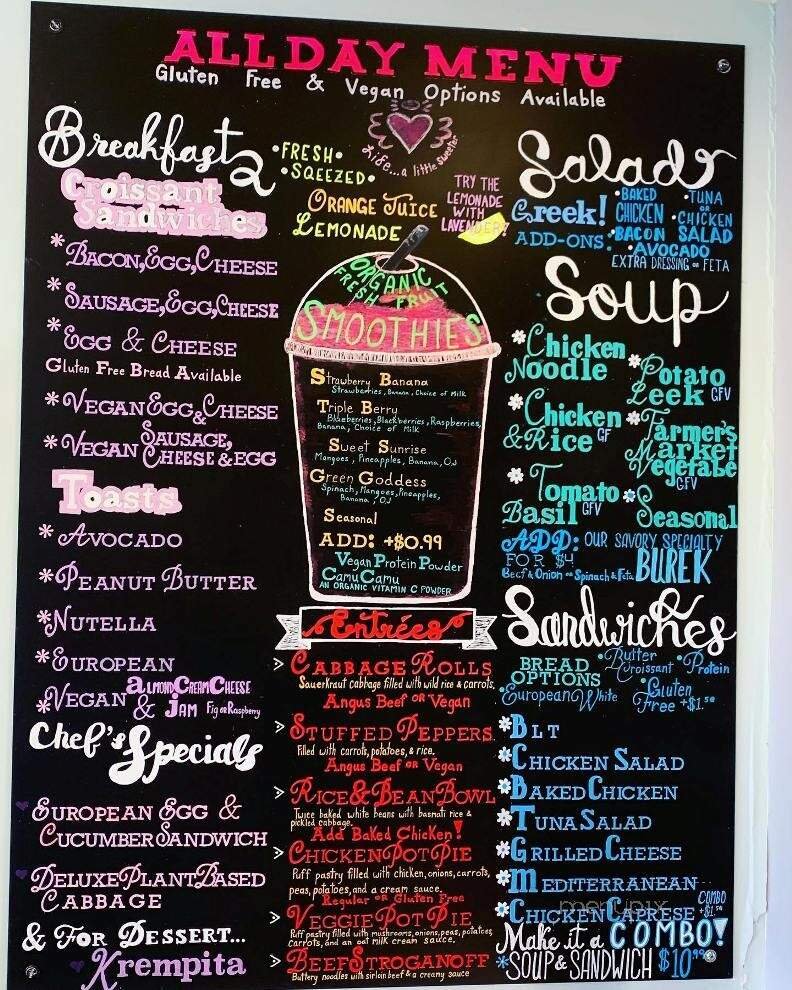 ALL DAY MENU
Gluten Free & Vegan Options Available
Breakfast
Croissant
Sandwiches
*Bacon, Egg, Cheese
*Sausage, Egg, Cheese
*Egg & Cheese
Gluten Free Bread Available
*Vegan Egg & Cheese
*Vegan Sausage,
Cheese & Egg
Toasts
*Avocado
*Peanut Butter
*Nutella
*European
*Vegan Almond Cream Cheese
& Jam Fig or Raspberry
Chef's Specials
European Egg &
Cucumber Sandwich
Deluxe Plant Based
Cabbage
& For Dessert...
Krempita
Life... a little sweeter
•FRESH•
•SQEEZED•
Orange Juice
Lemonade
TRY THE
LEMONADE
WITH
LAVENDER!
ORGANIC
FRESH FRUIT
SMOOTHIES
Strawberry Banana
Strawberries, Banana, Choice of Milk
Triple Berry
Blueberries, Blackberries, Raspberries,
Banana, Choice of Milk
Sweet Sunrise
Mangoes, Pineapples, Banana, OJ
Green Goddess
Spinach, Mangoes, Pineapples,
Banana, OJ
Seasonal
ADD: +$0.99
Vegan Protein Powder
Camu Camu
AN ORGANIC VITAMIN C POWDER
Entrées
> Cabbage Rolls
Sauerkraut cabbage filled with wild rice & carrots.
Angus Beef OR Vegan
> Stuffed Peppers
Filled with carrots, potatoes, & rice.
Angus Beef OR Vegan
> Rice & Bean Bowl
Twice baked white beans with basmati rice &
pickled cabbage.
Add Baked Chicken!
> Chicken Pot Pie
Puff pastry filled with chicken, onions, carrots,
peas, potatoes, and a cream sauce.
Regular OR Gluten Free
> Veggie Pot Pie
Puff pastry filled with mushrooms, onions, peas, potatoes,
carrots, and an oat milk cream sauce.
> Beef Stroganoff
Buttery noodles with sirloin beef & a creamy sauce
Salad
Greek!
ADD-ONS:
•BAKED
CHICKEN
•BACON
•TUNA
OR
CHICKEN
SALAD
•AVOCADO
EXTRA DRESSING OR FETA
Soup
*Chicken
Noodle
*Potato
Leek GFV
*Chicken
& Rice GF
*Farmer's
Market
Vegetable
GFV
*Tomato
Basil GFV
*Seasonal
ADD: OUR SAVORY SPECIALTY
FOR $4 BUREK
Beef & Onion or Spinach & Feta
Sandwiches
BREAD
OPTIONS
•Butter
Croissant
•Protein
•European White
•Gluten
Free +$1.50
*BLT
*Chicken Salad
*Baked Chicken
*Tuna Salad
*Grilled Cheese
*Mediterranean
*Chicken Caprese
COMBO
+$1.50
menupix
Make it a COMBO!
*SOUP & SANDWICH $10.99